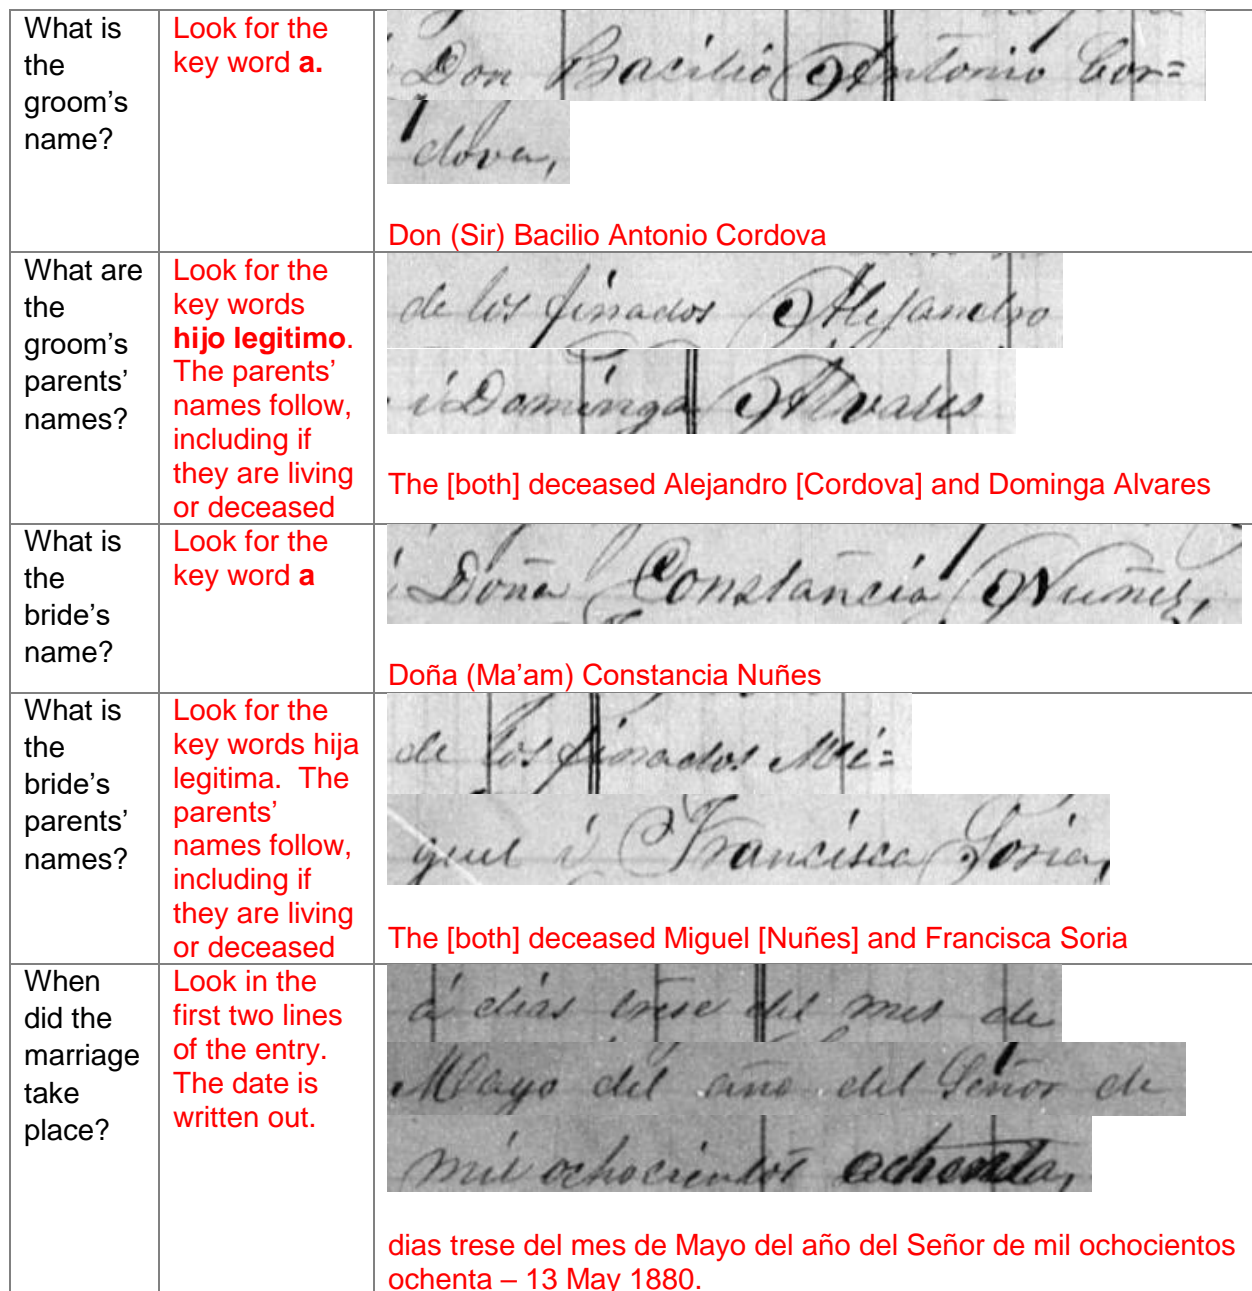 What is
the
groom's
name?
Look for the
key word a.
Don Bacilio Antonio Cor=
dova,
Don (Sir) Bacilio Antonio Cordova
What are
the
groom's
parents'
names?
Look for the
key words
hijo legitimo.
The parents'
names follow,
including if
they are living
or deceased
de los finados Alejandro
i Dominga Alvares
The [both] deceased Alejandro [Cordova] and Dominga Alvares
What is
the
bride's
name?
Look for the
key word a
i Doña Constancia Nuñes,
Doña (Ma'am) Constancia Nuñes
What is
the
bride's
parents'
names?
Look for the
key words hija
legitima. The
parents'
names follow,
including if
they are living
or deceased
de los finados Mi=
guel i Francisca Soria,
The [both] deceased Miguel [Nuñes] and Francisca Soria
When
did the
marriage
take
place?
Look in the
first two lines
of the entry.
The date is
written out.
á dias trese del mes de
Mayo del año del Señor de
mil ochocientos ochenta,
dias trese del mes de Mayo del año del Señor de mil ochocientos
ochenta – 13 May 1880.